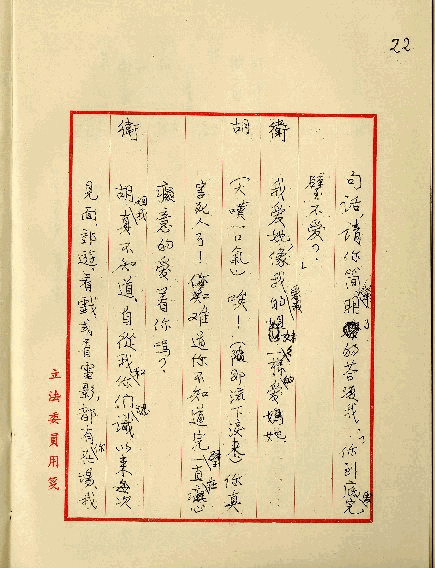 22
句話,請你簡明的答復我,「你到底究
不愛?」
衛 我愛她像我的一樣愛她
胡 (大噴一口氣)唉!(隨即流下淚來)你真
害死人了!難道你不知道一直在癡心
癡意的愛着你嗎?
衛 我真不知道,自從我和你們認識以來每次
見面、郊遊、看戲或看電影,都有你在場,我
立法委員用箋